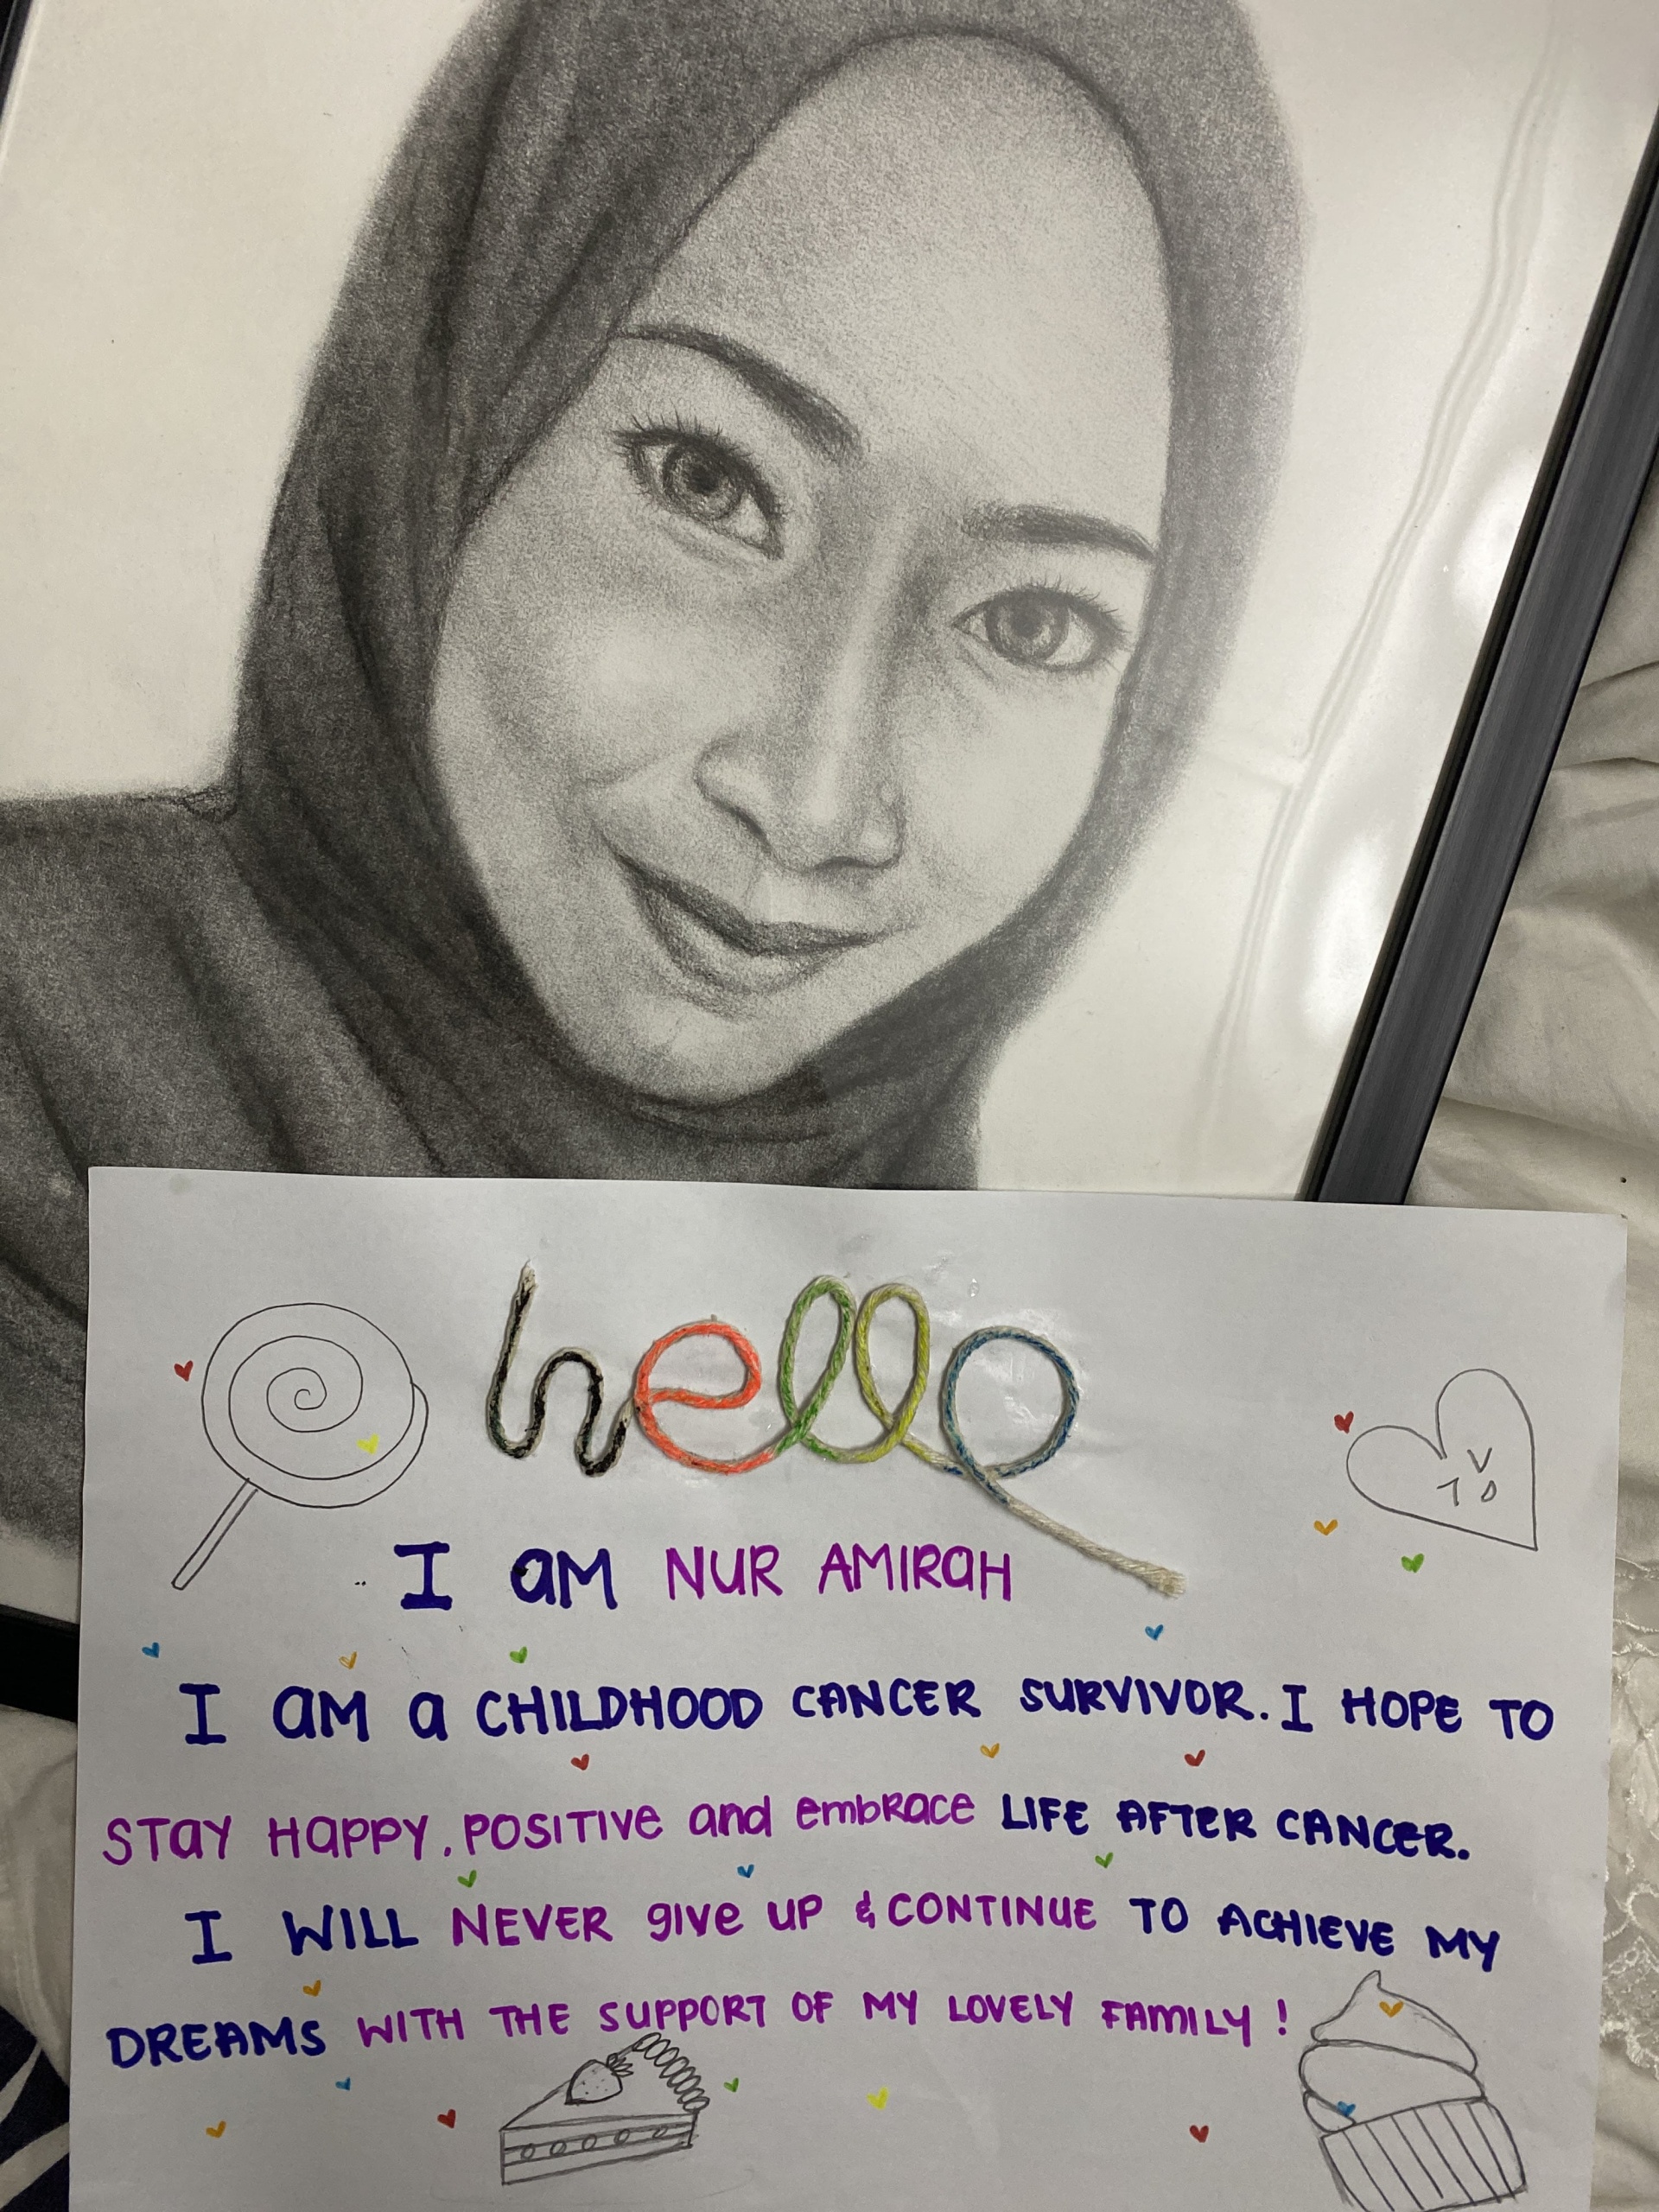 hello
I am NUR AMIRAH
I AM a CHILDHOOD CANCER SURVIVOR. I HOPE TO
STAY HAPPY, POSITIVE and embrace LIFE AFTER CANCER.
I WILL NEVER give UP & CONTINUE TO ACHIEVE MY
DREAMS WITH THE SUPPORT OF MY LOVELY FAMILY!